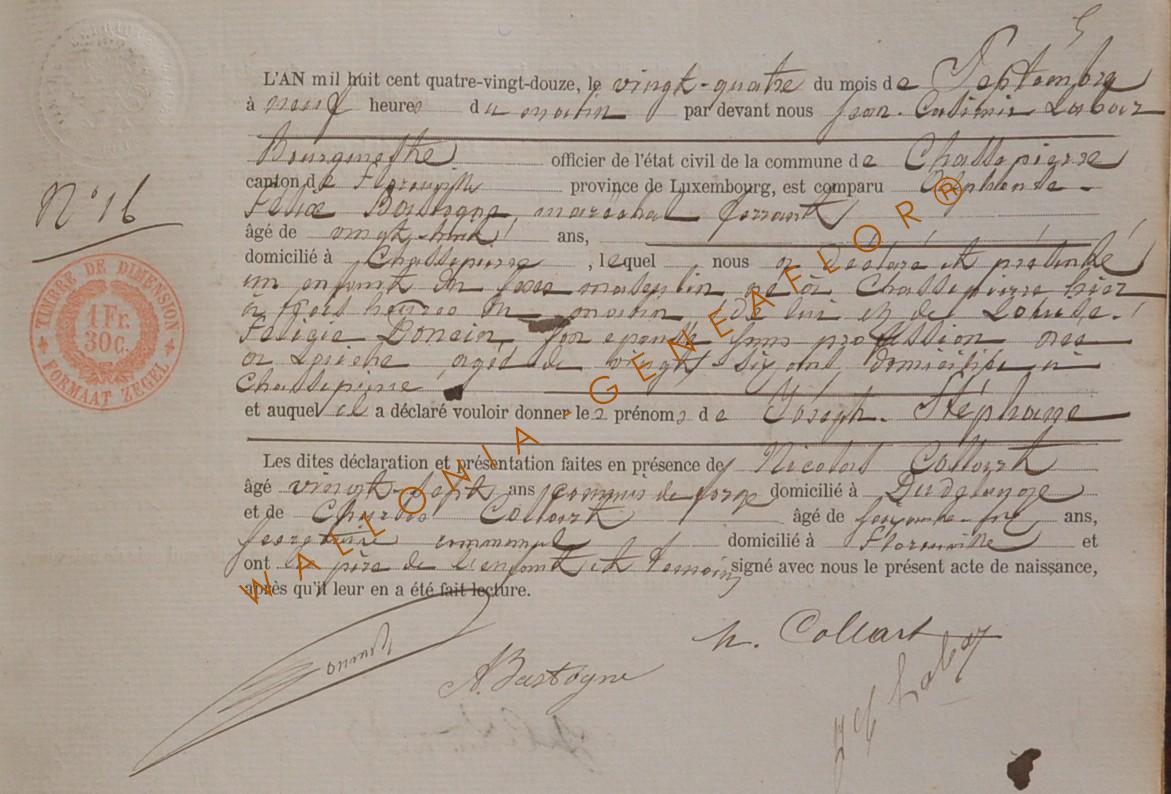 L'AN mil huit cent quatre-vingt-douze, le vingt-quatre du mois de Septembre
à neuf heures du matin par devant nous Jean. Casimir
Bourgmestre officier de l'état civil de la commune de Chassepierre
N° 16
canton de Florenville province de Luxembourg, est comparu
Félix Bastogne, maréchal ferrant
âgé de vingt-huit ans,
domicilié à Chassepierre, lequel nous a déclaré et présenté
un enfant du sexe masculin né à Chassepierre hier
à trois heures du matin de lui et de Louise.
son épouse sans profession née
à âgée de vingt six ans domiciliée à
Chassepierre
et auquel il a déclaré vouloir donner les prénoms de Joseph. Stéphane
Les dites déclaration et présentation faites en présence de Nicolas Collart
âgé vingt-sept ans commis de forge domicilié à Dudelange
et de Charles Collart âgé de ans,
secrétaire communal domicilié à Florenville et
ont le père de l'enfant et témoins signé avec nous le présent acte de naissance,
après qu'il leur en a été fait lecture.
TIMBRE DE DIMENSION
1 Fr.
30c.
FORMAAT ZEGEL
N. Collart
A. Bastogne
WALLONIA - GENEAFLOR ®